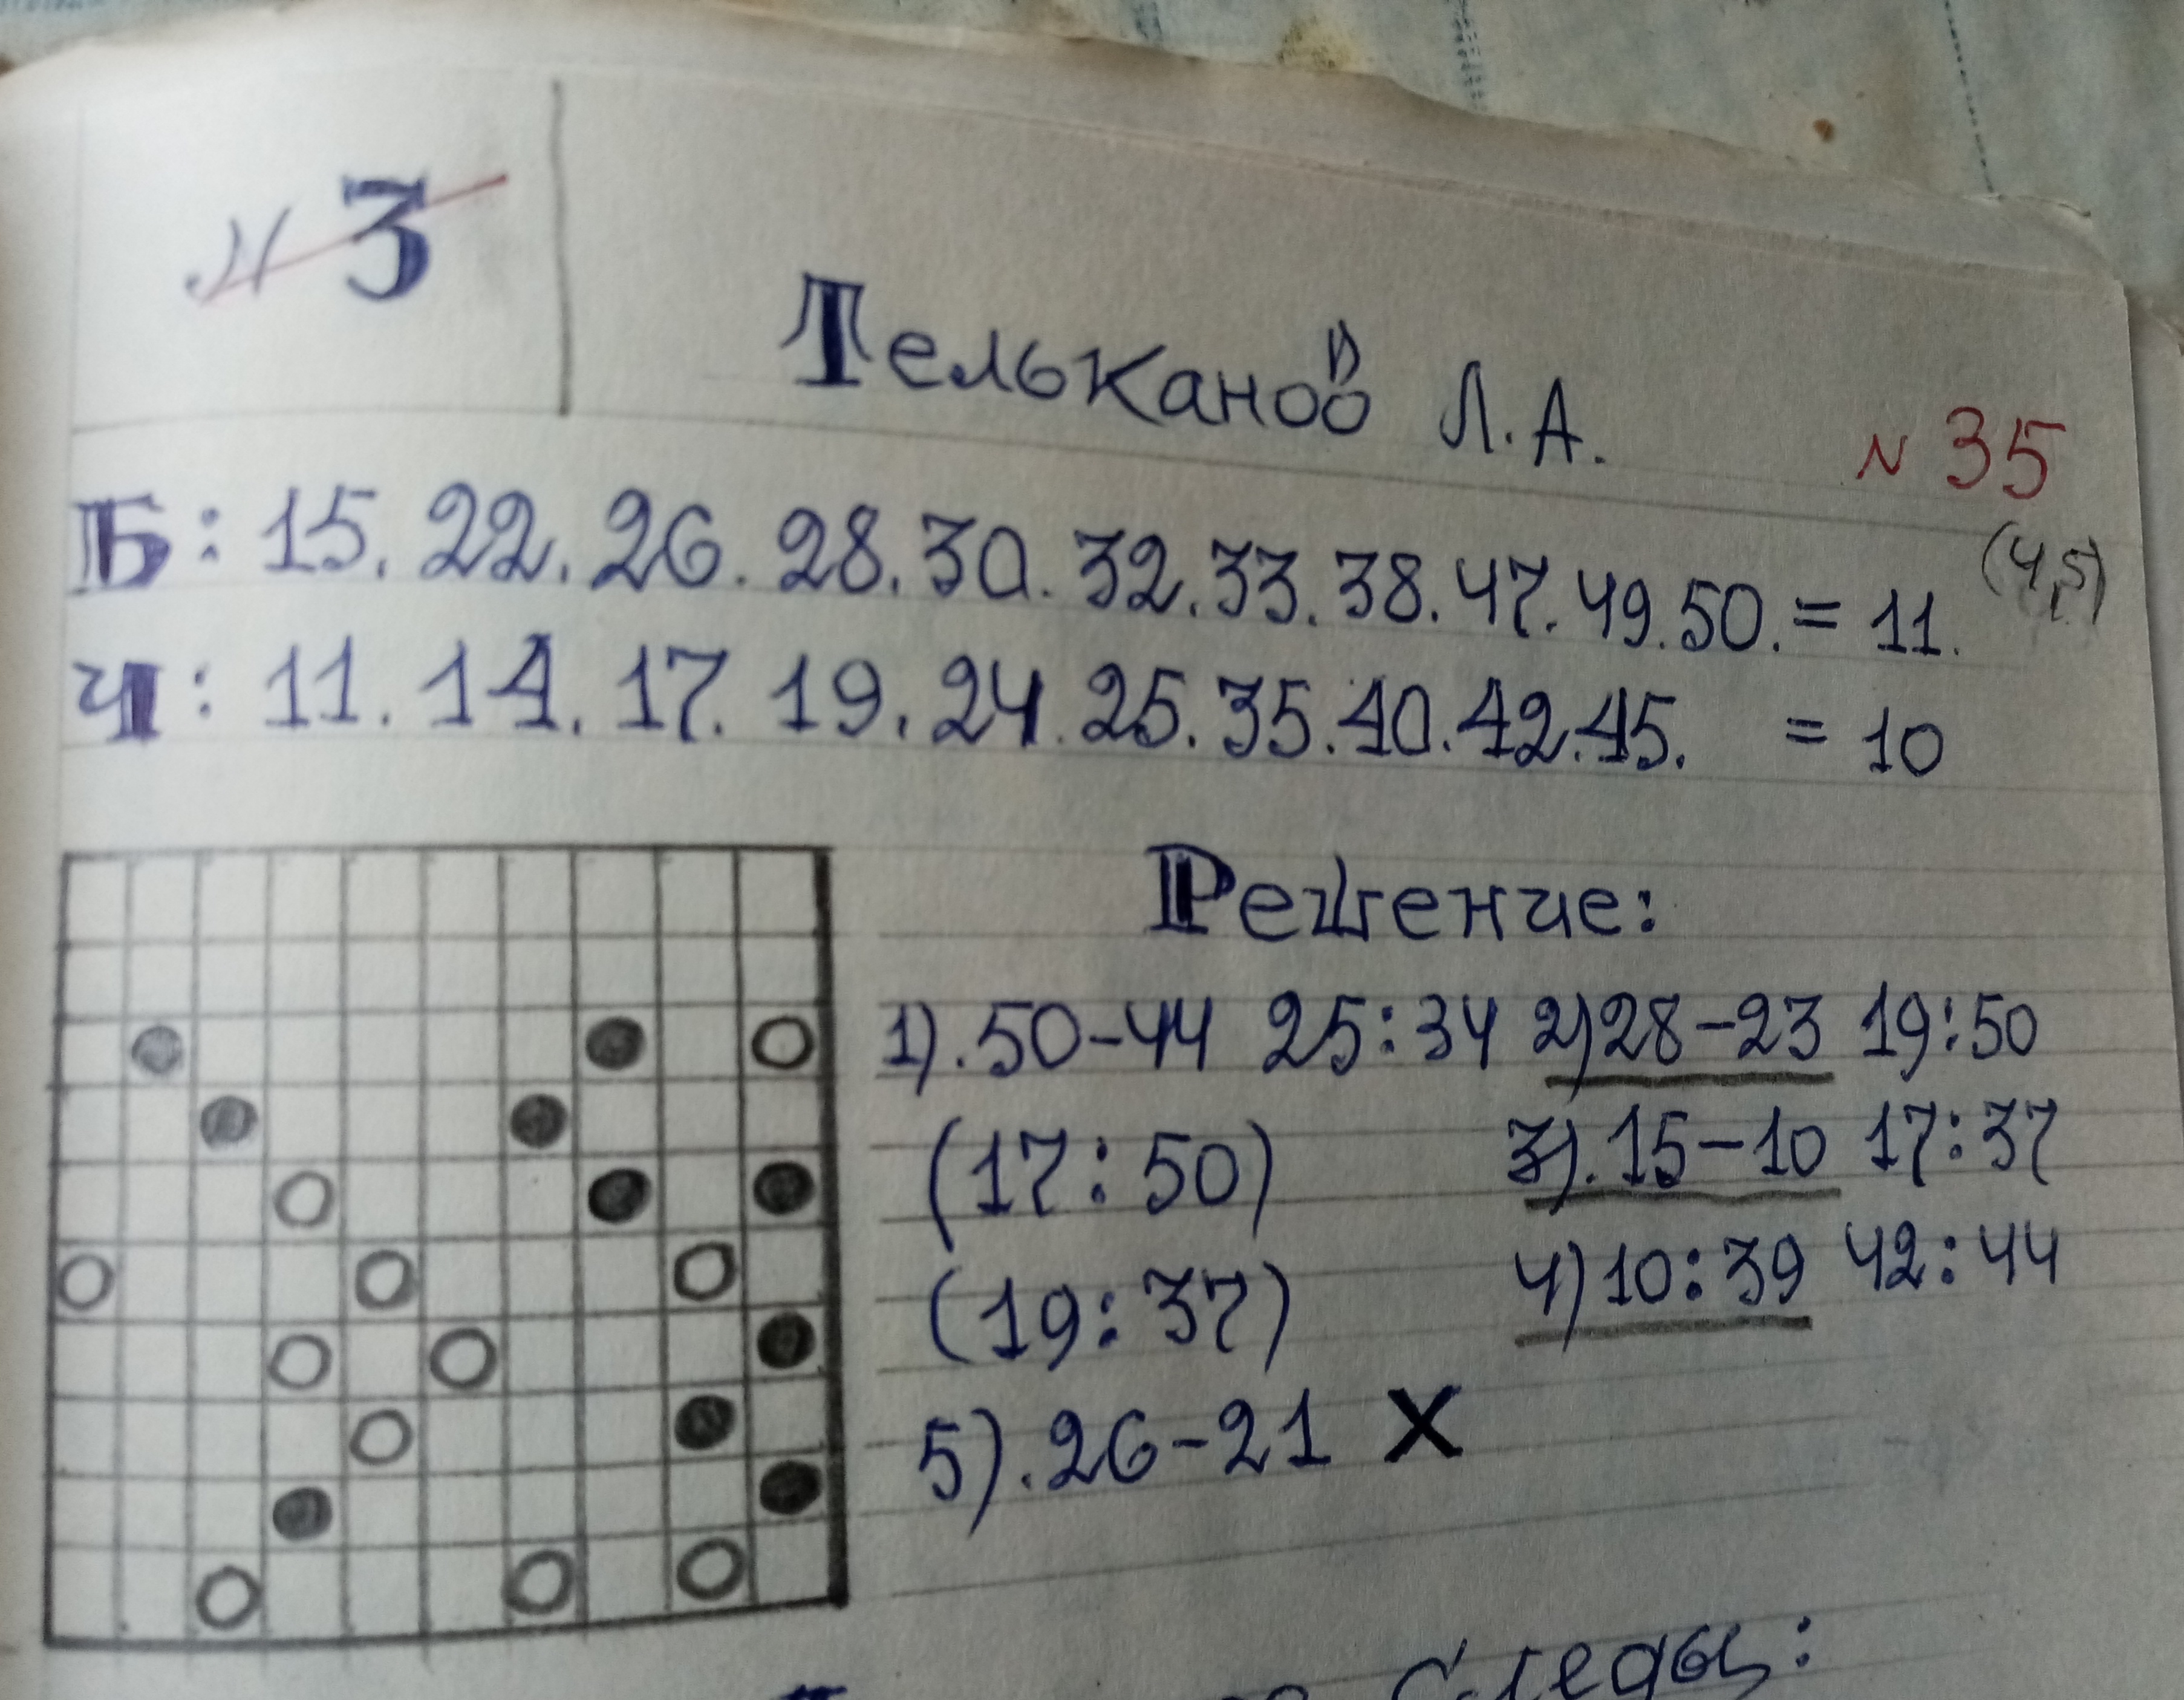 № 3
Тельканов Л.А.
№ 35
Б: 15. 22. 26. 28. 30. 32. 33. 38. 47. 49. 50. = 11.
(4,5)
Ч: 11. 14. 17. 19. 24. 25. 35. 40. 42. 45. = 10
Решение:
1). 50-44 25:34 2) 28-23 19:50
(17:50) 3). 15-10 17:37
(19:37) 4) 10:39 42:44
5). 26-21 X
Следы: